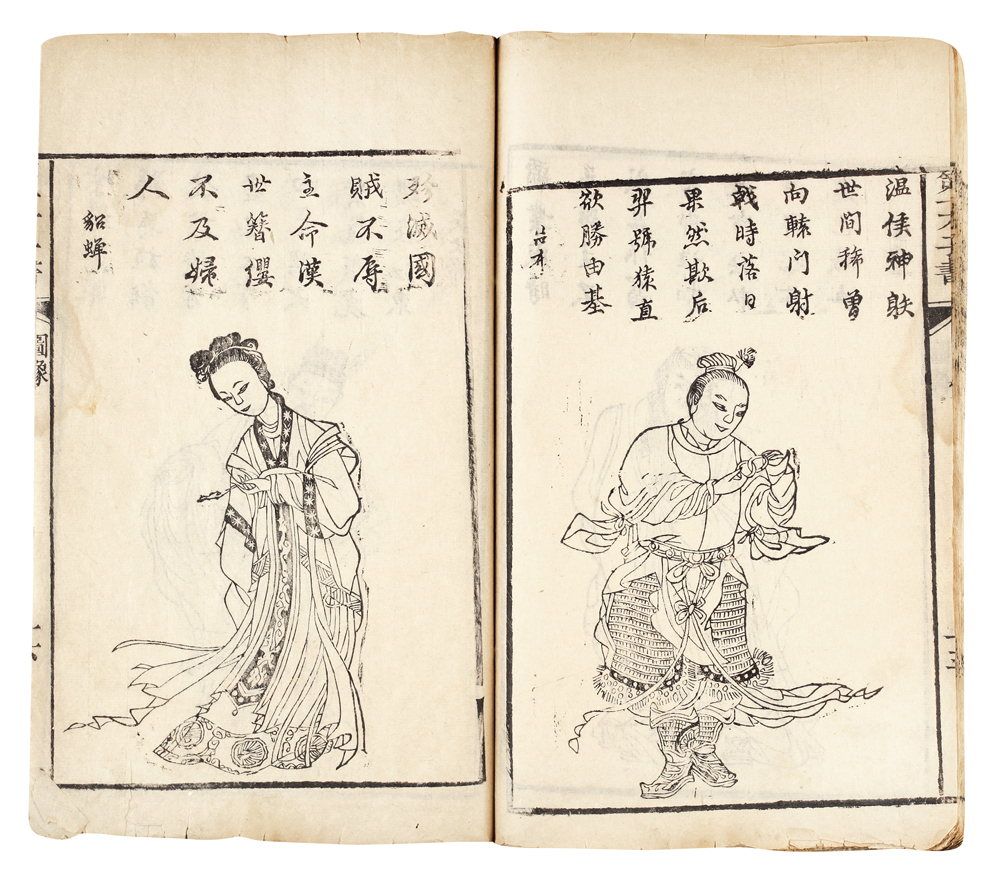 第一才子書
温侯神射
世间稀曾
向轅门射
戟時落日
果然欺后
羿號猿直
欲勝由基
吕布
殄滅國
賊不辱
主命漢
世簪纓
不及婦
人
貂蟬
圖像